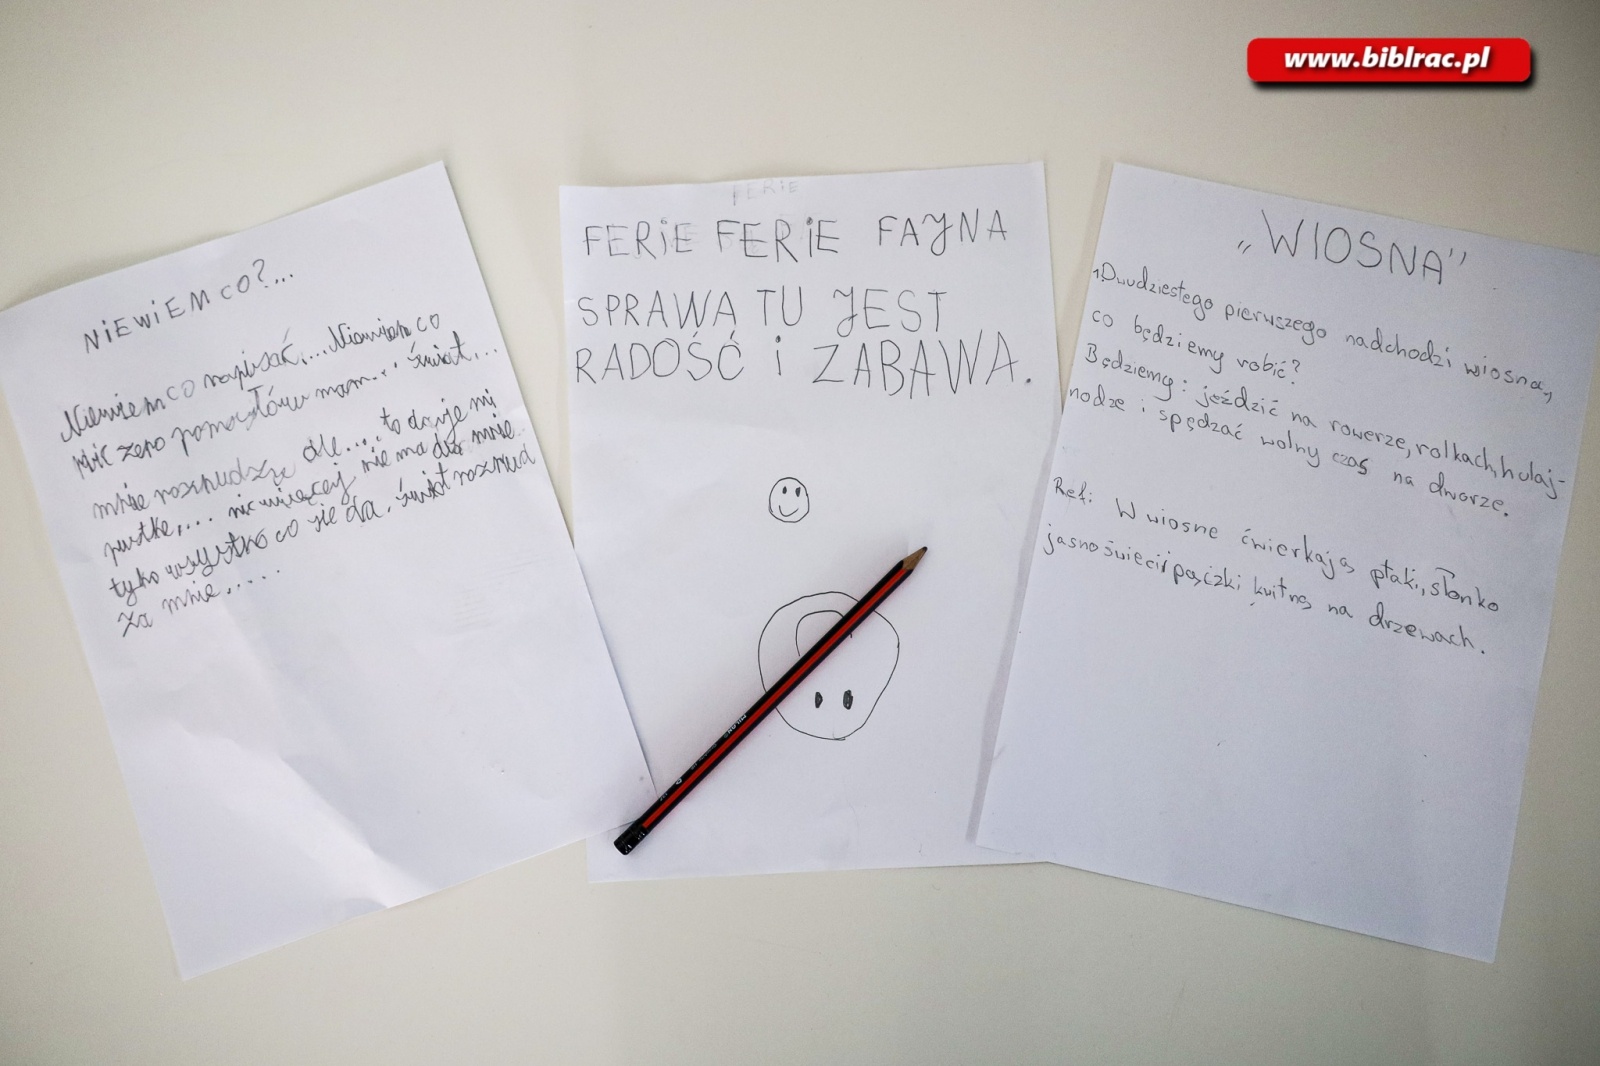 www.biblrac.pl
NIEWIEM CO?...
Niewiem co napisać,... Niewiem co
zero pomocłów mam... świat...
mnie ale... to daje mi
pustkę,... nic więcej nie ma dla mnie
tylko wszystko co się da. świat
za mnie....
FERIE
FERIE FERIE FAJNA
SPRAWA TU JEST
RADOŚĆ i ZABAWA.
„WIOSNA”
1.Dwudziestego pierwszego nadchodzi wiosna,
co będziemy robić?
Będziemy: jeździć na rowerze, rolkach, hulaj-
nodze i spędzać wolny czas na dworze.
Ref: W wiosne ćwierkają ptaki, słonko
jasno świeci i pączki kwitną na drzewach.